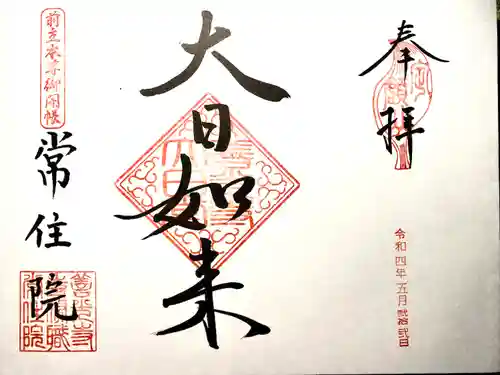 奉拝
令和四年五月弐拾弐日
大日如来
前立本尊御開帳
常住院